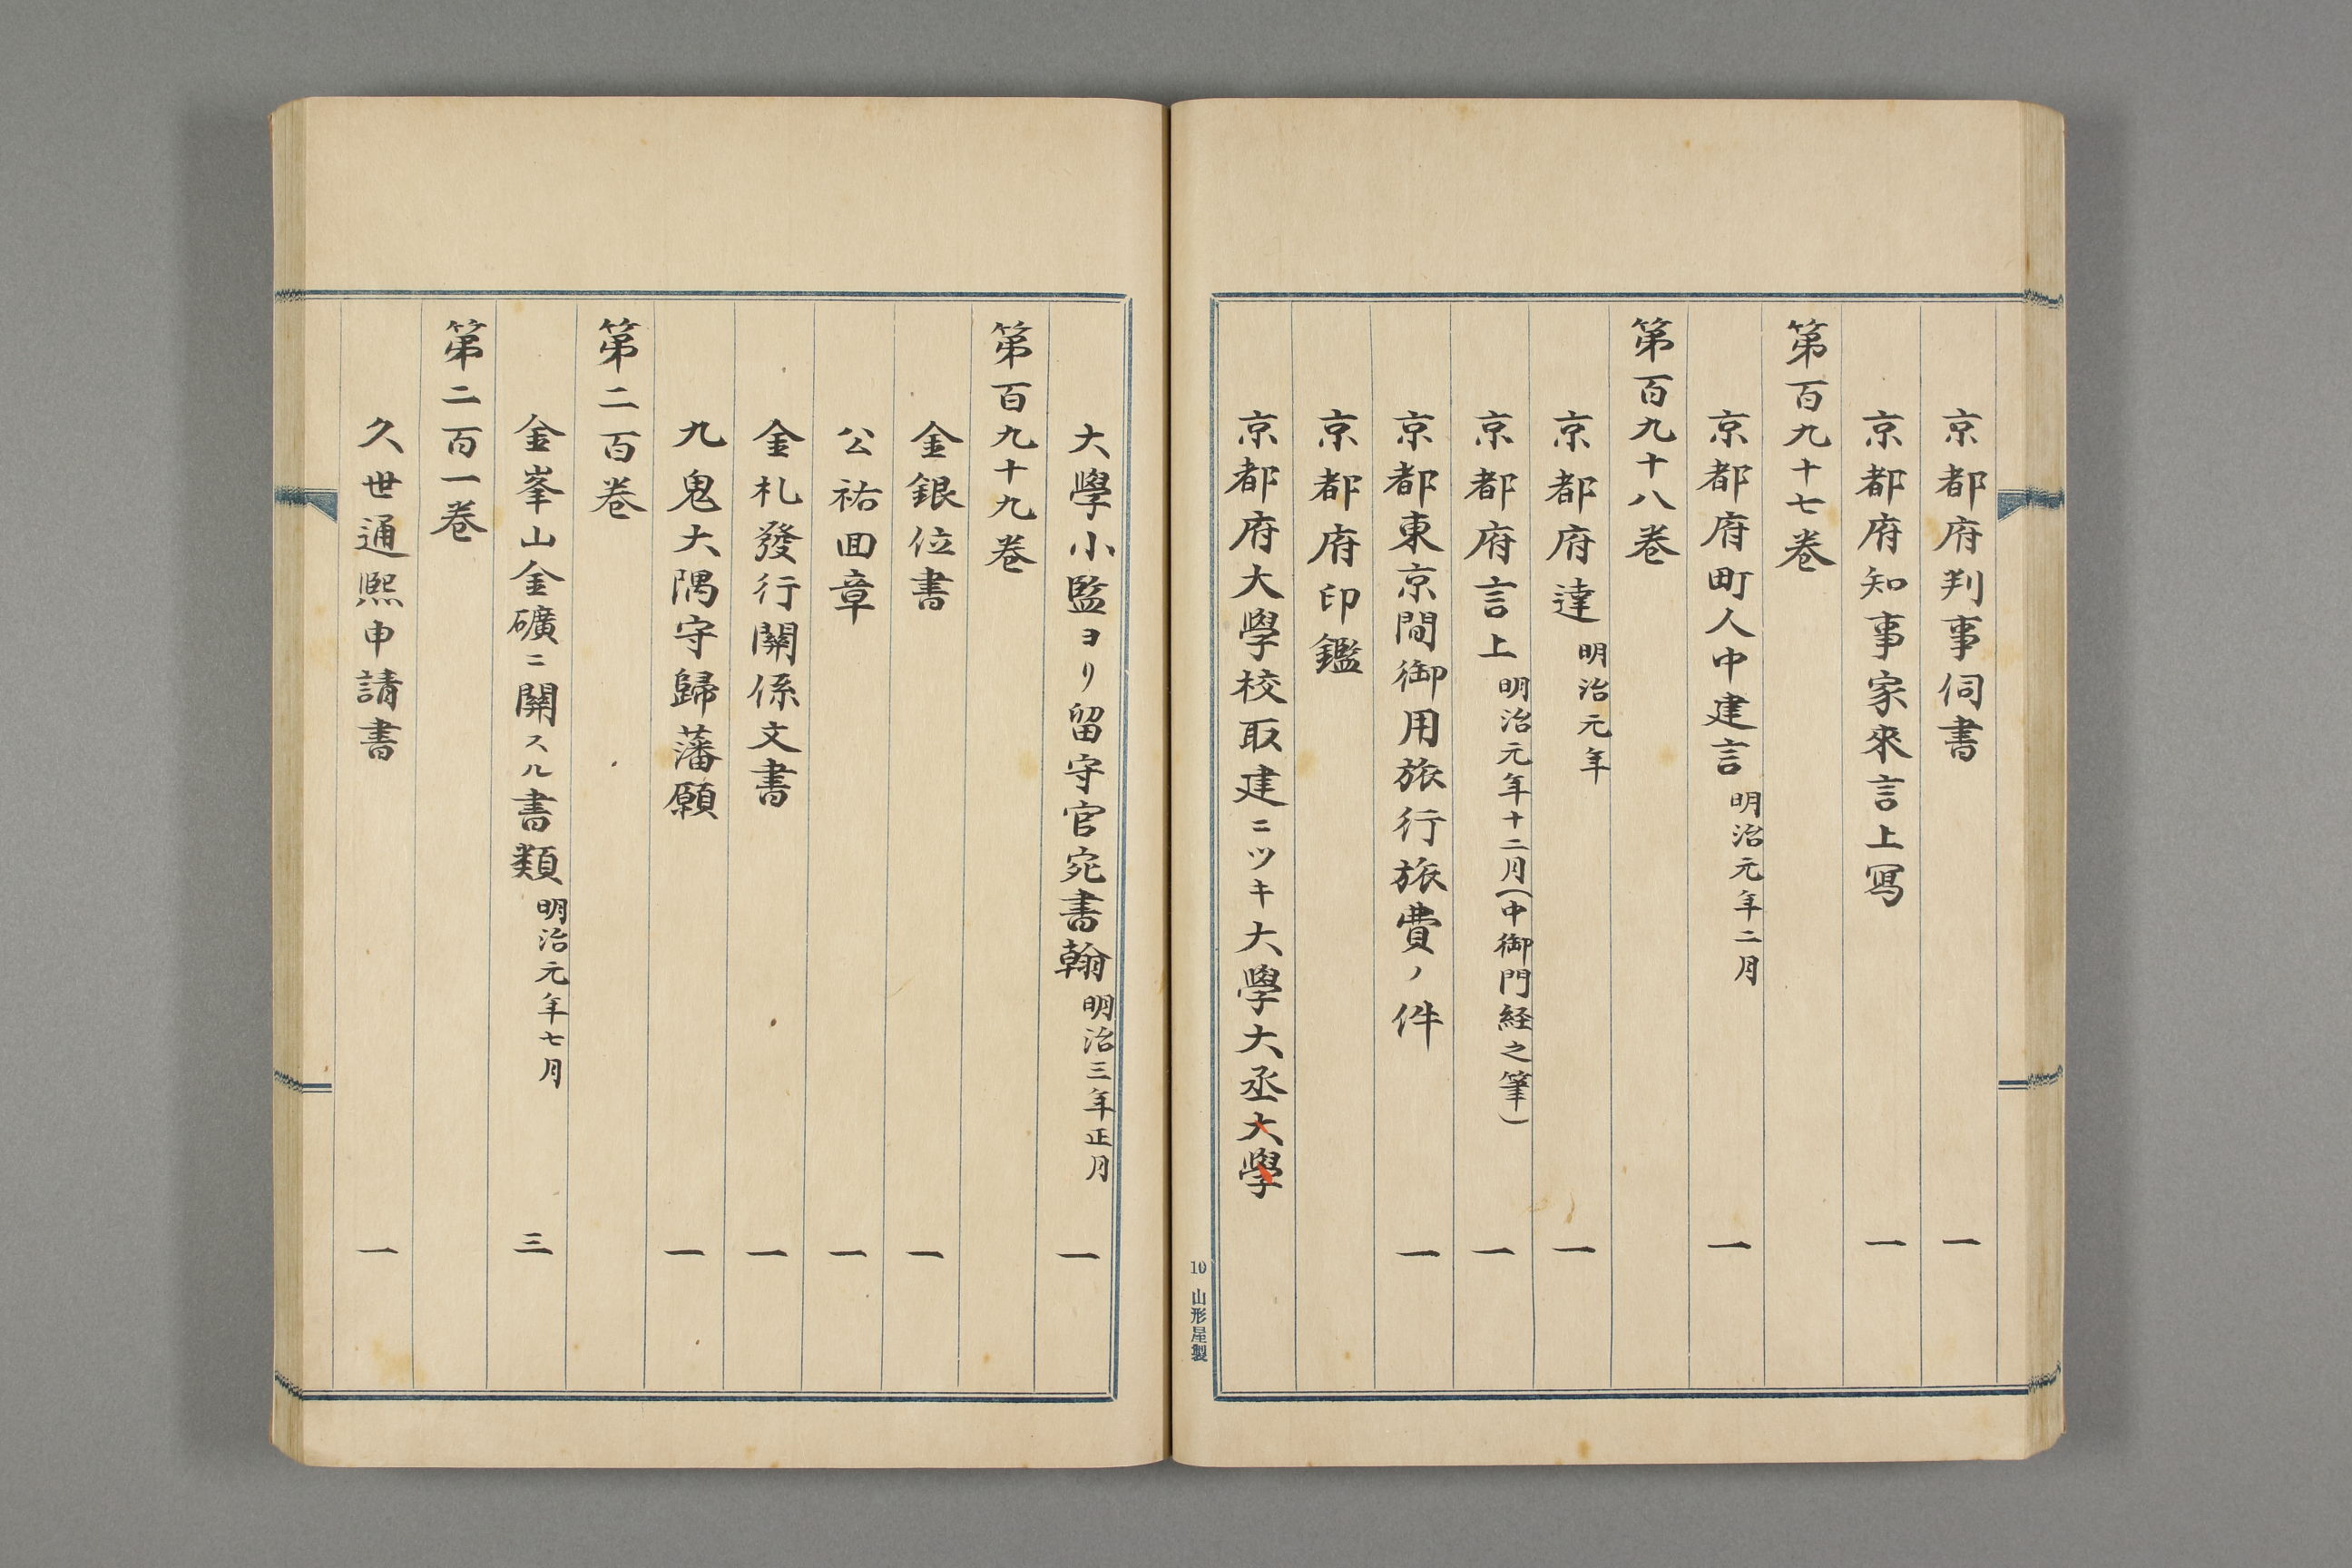 京都府判事伺書 一
京都府知事家來言上寫 一
第百九十七卷
京都府町人中建言 明治元年二月 一
第百九十八卷
京都府達 明治元年 一
京都府言上 明治元年十二月(中御門経之筆) 一
京都東京間御用旅行旅費ノ件 一
京都府印鑑
京都府大學校取建ニツキ大學大丞大學
10 山形屋製
大學小監ヨリ留守官宛書翰 明治三年正月 一
第百九十九卷
金銀位書 一
公祐回章 一
金札發行關係文書 一
九鬼大隅守歸藩願 一
第二百卷
金峯山金礦ニ關スル書類 明治元年七月 三
第二百一卷
久世通熙申請書 一